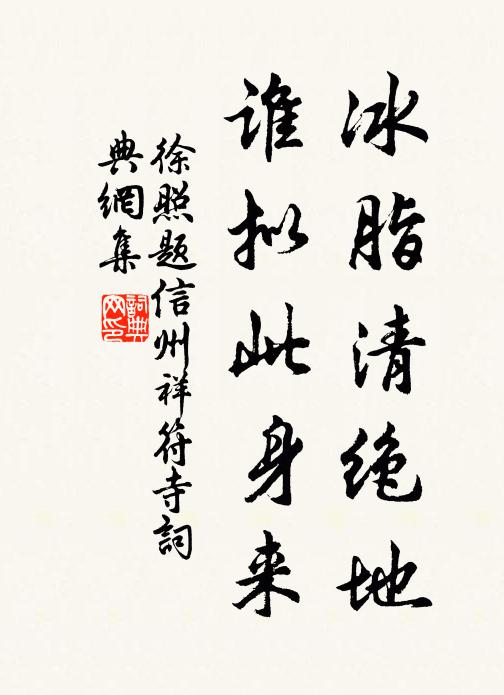 冰脂清绝地
谁拟此身来
徐照题信州祥符寺詞
典網集
詞典网印